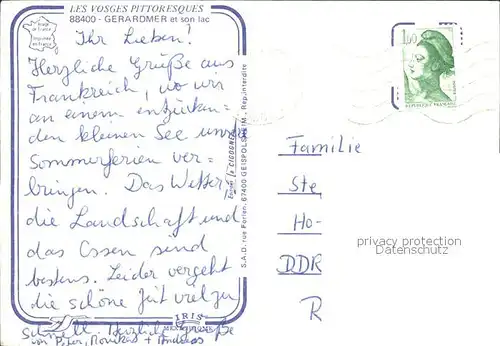 LES VOSGES PITTORESQUES
88400 - GERARDMER et son lac
Ihr Lieben!
Herzliche Grüße aus
Frankreich, wo wir
an einem entzücken=
den kleinen See unsere
Sommerferien ver=
bringen. Das Wetter,
die Landschaft und
das Essen sind
bestens. Leider vergeht
die schöne Zeit viel zu
schnell. Herzliche Grüße
von Peter, Monika + Andreas
IRIS
S.A.D. rue Ferlen, 67400 GEISPOLSHEIM, Rep. interdite
1,60
REPUBLIQUE FRANCAISE
Familie
Ste
Ho-
DDR
R
privacy protection
Datenschutz